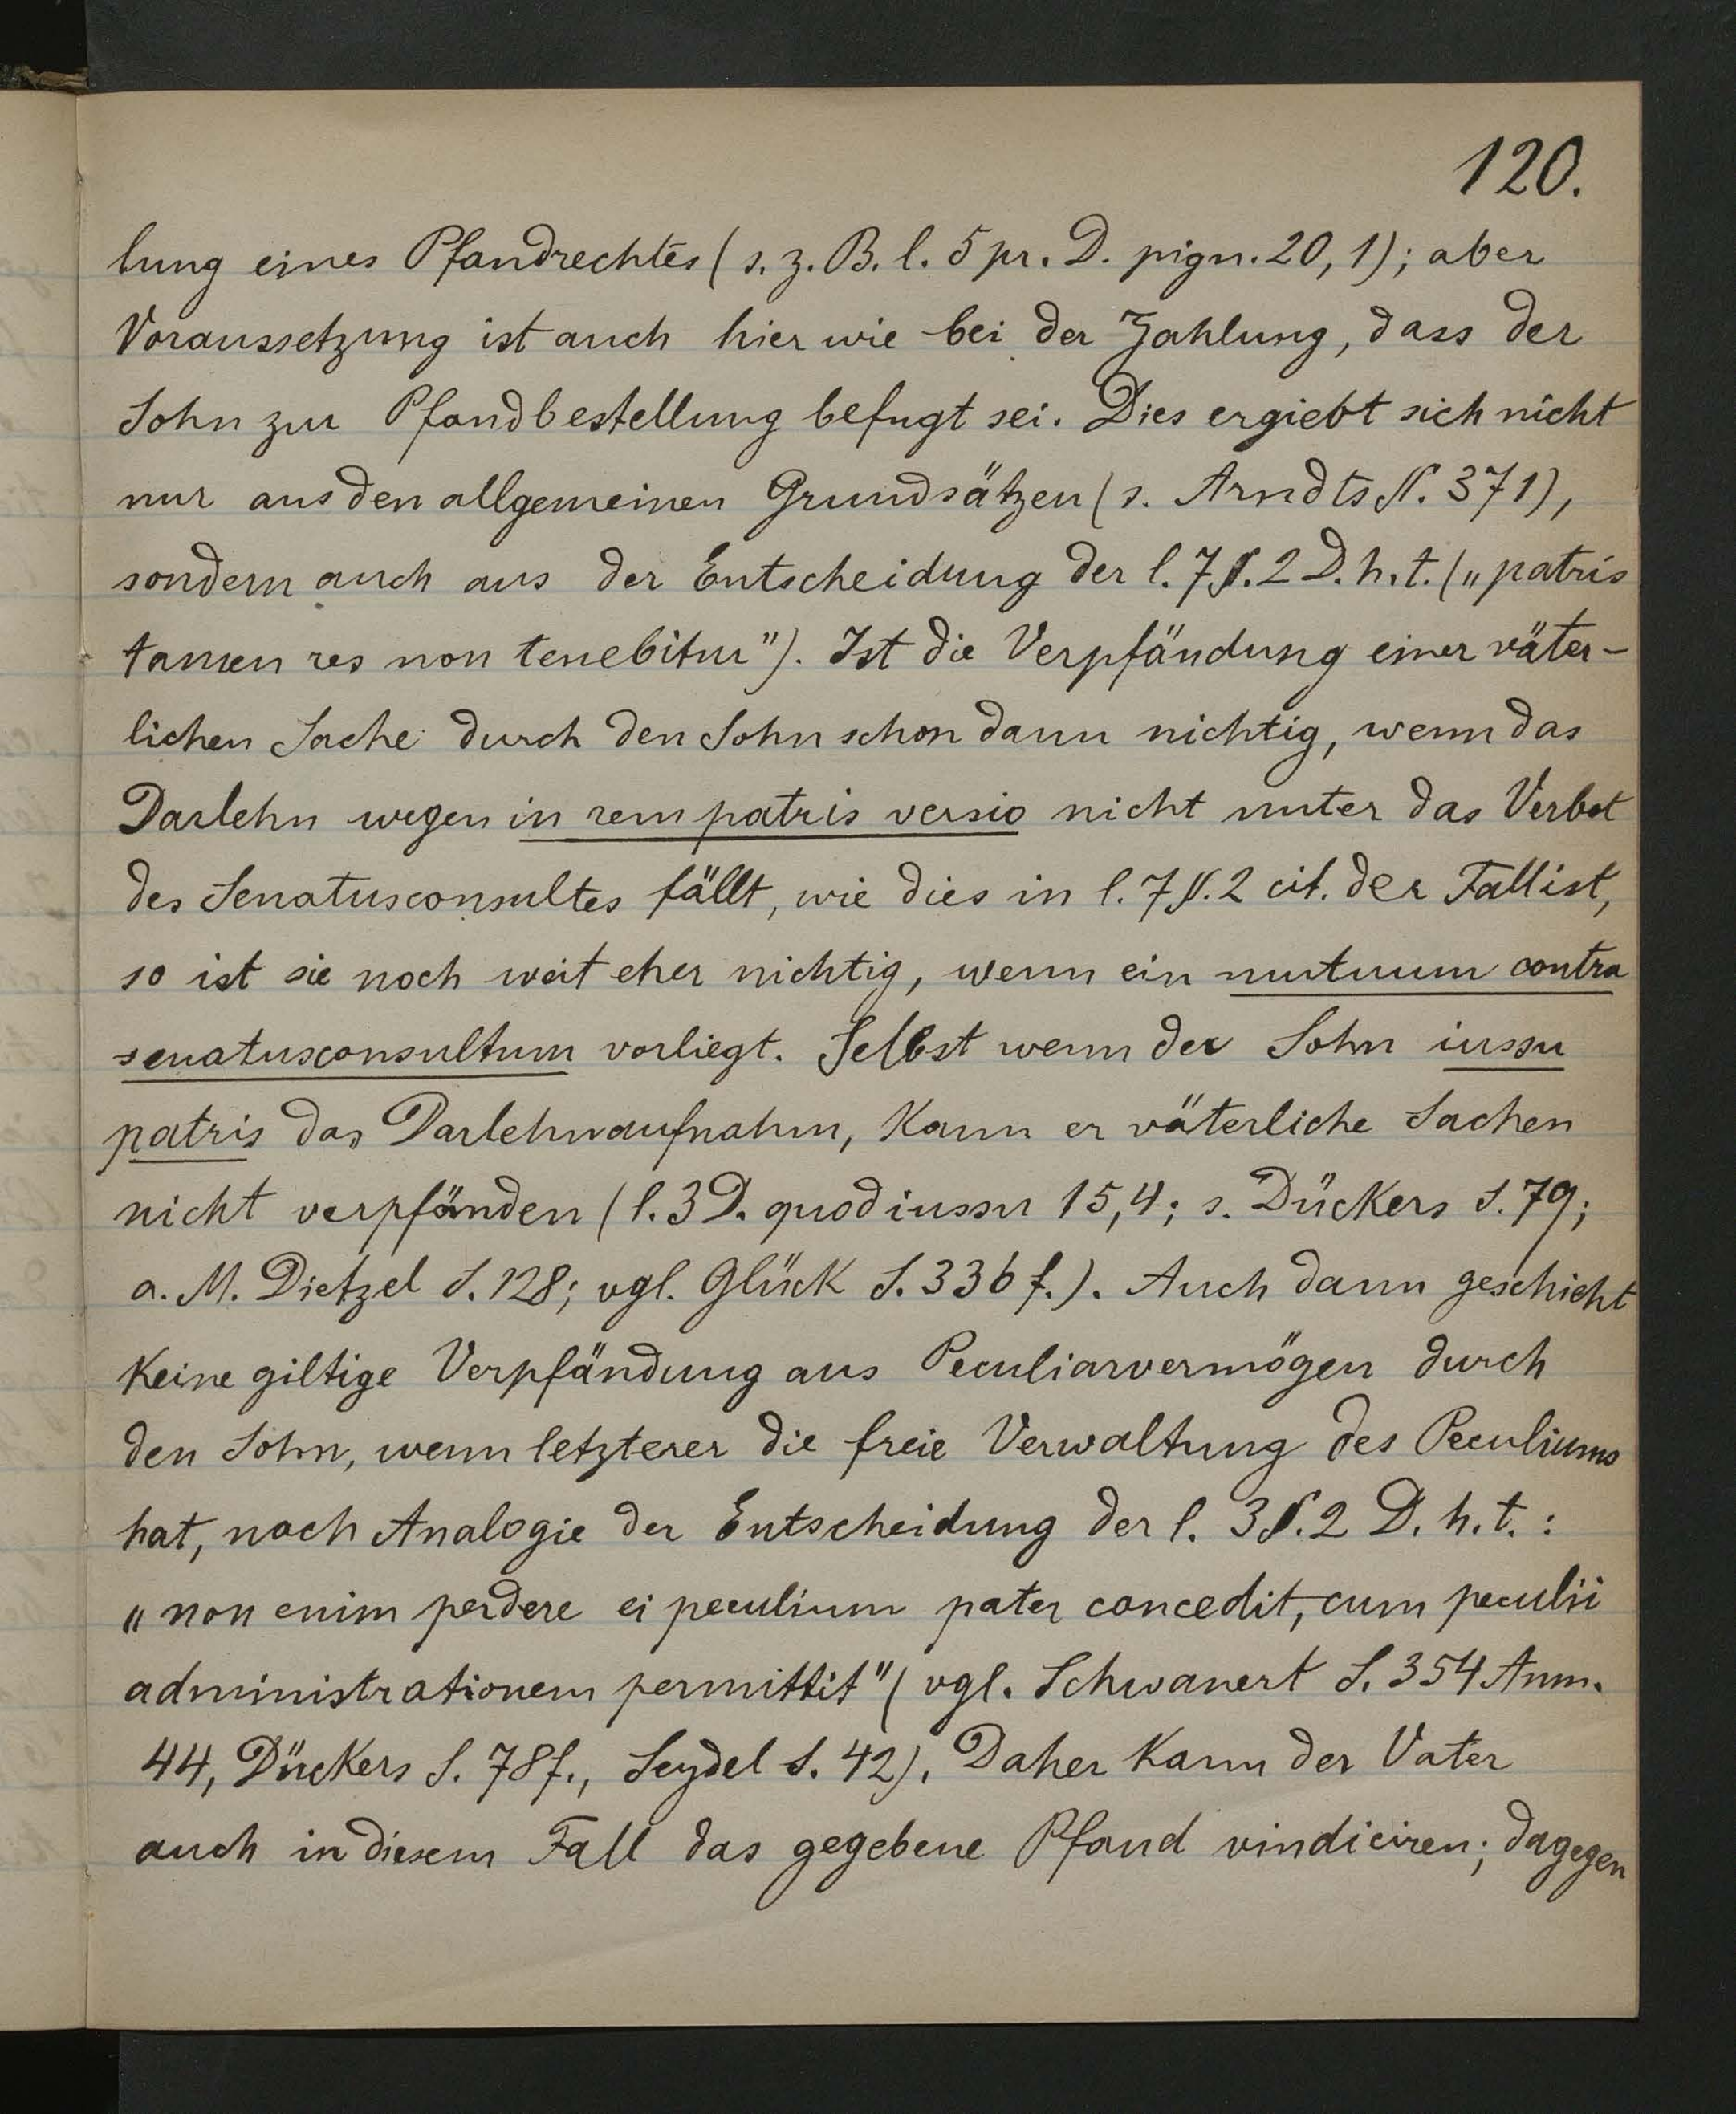 120.
lung eines Pfandrechtes (s. z. B. l. 5 pr. D. pign. 20, 1); aber
Voraussetzung ist auch hier wie bei der Zahlung, dass der
Sohn zur Pfandbestellung befugt sei. Dies ergiebt sich nicht
nur aus den allgemeinen Grundsätzen (s. Arndts §. 371),
sondern auch aus der Entscheidung der l. 7 §. 2 D. h. t. („patris
tamen res non tenebitur"). Ist die Verpfändung einer väter-
lichen Sache durch den Sohn schon dann nichtig, wenn das
Darlehn wegen in rem patris versio nicht unter das Verbot
des Senatusconsultes fällt, wie dies in l. 7 §. 2 cit. der Fall ist,
so ist sie noch weit eher nichtig, wenn ein mutuum contra
senatusconsultum vorliegt. Selbst wenn der Sohn iussu
patris das Darlehn aufnahm, kann er väterliche Sachen
nicht verpfänden (l. 3 D. quod iussu 15,4; s. Dückers S. 79;
a. M. Dietzel S. 128; vgl. Glück S. 336 f.). Auch dann geschieht
keine giltige Verpfändung aus Peculiarvermögen durch
den Sohn, wenn letzterer die freie Verwaltung des Peculiums
hat, nach Analogie der Entscheidung der l. 3 §. 2 D. h. t. :
„non enim perdere ei peculium pater concedit, cum peculii
administrationem permittit" (vgl. Schwanert S. 354 Anm.
44, Dückers S. 78 f., Seydel S. 42). Daher kann der Vater
auch in diesem Fall das gegebene Pfand vindiciren; dagegen